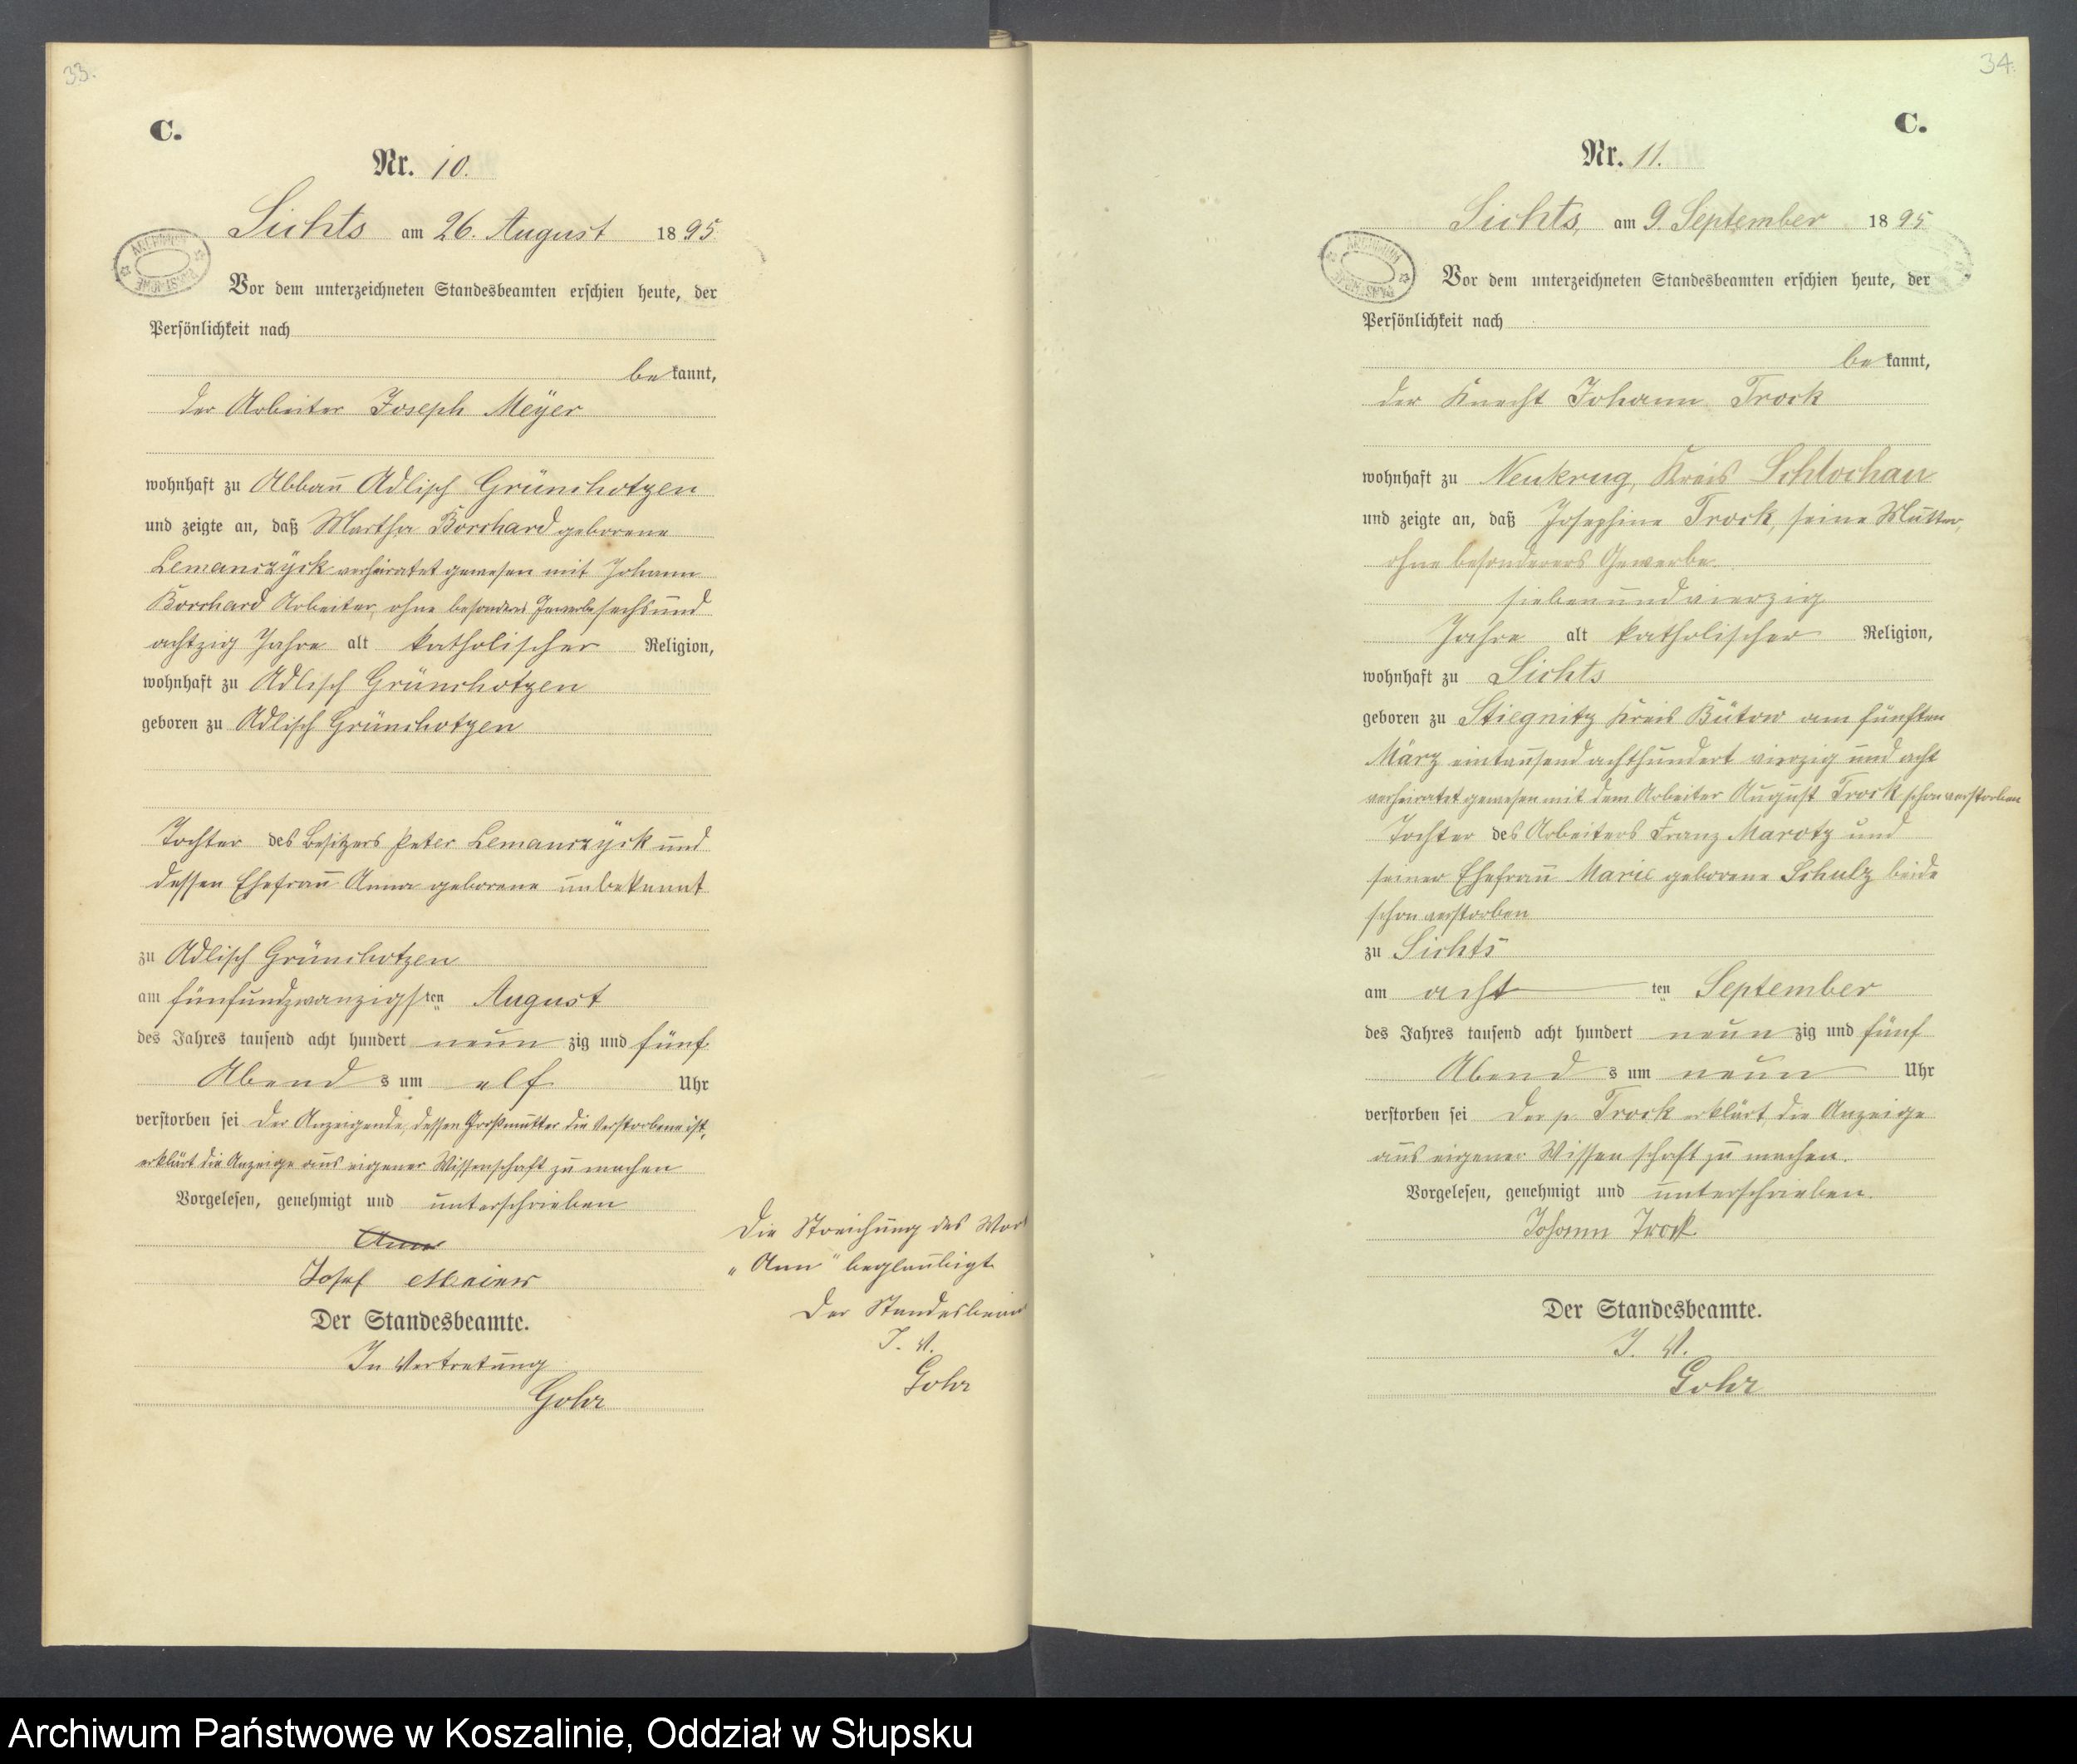 33.
C.
Nr. 10.
Sichts am 26. August 1895.
Vor dem unterzeichneten Standesbeamten erschien heute, der
Persönlichkeit nach
bekannt,
der Arbeiter Joseph Meÿer
wohnhaft zu Abbau Adlisch Grünchotzen
und zeigte an, daß Martha Borchard geborene
Lemanczÿck verheiratet gewesen mit Johann
Borchard Arbeiter, ohne besonders Gewerbe sechsund
achtzig Jahre alt katholischer Religion,
wohnhaft zu Adlisch Grünchotzen
geboren zu Adlisch Grünchotzen
Tochter des Besitzers Peter Lemanczÿck und
dessen Ehefrau Anna geborene unbekannt
zu Adlisch Grünchotzen
am fünfundzwanzigsten August
des Jahres tausend acht hundert neunzig und fünf
Abends um elf Uhr
verstorben sei der Anzeigende, dessen Großmutter die Verstorbene ist,
erklärt die Anzeige aus eigener Wissenschaft zu machen
Vorgelesen, genehmigt und unterschrieben
Ann
Josef Meier
Der Standesbeamte.
In Vertretung
Gohr
Die Streichung des Wort
„Ann" beglaubigt
Der Standesbeam
J. V.
Gohr
34.
C.
Nr. 11.
Sichts, am 9. September 1895
Vor dem unterzeichneten Standesbeamten erschien heute, der
Persönlichkeit nach
bekannt,
der Knecht Johann Trock
wohnhaft zu Neukrug, Kreis Schlochau
und zeigte an, daß Josephine Trock, seine Mutter,
ohne besonderers Gewerbe
siebenundvierzig
Jahre alt katholischer Religion,
wohnhaft zu Sichts
geboren zu Stiegnitz Kreis Bütow am fünften
März eintausend achthundert vierzig und acht
verheiratet gewesen mit dem Arbeiter August Trock schon verstorben
Tochter des Arbeiters Franz Marotz und
seiner Ehefrau Marie geborene Schulz beide
schon verstorben
zu Sichts
am achtten September
des Jahres tausend acht hundert neunzig und fünf
Abends um neun Uhr
verstorben sei Der p. Trock erklärt, die Anzeige
aus eigener Wissenschaft zu machen.
Vorgelesen, genehmigt und unterschrieben.
Johann Trock
Der Standesbeamte.
J. V.
Gohr
Archiwum Państwowe w Koszalinie, Oddział w Słupsku